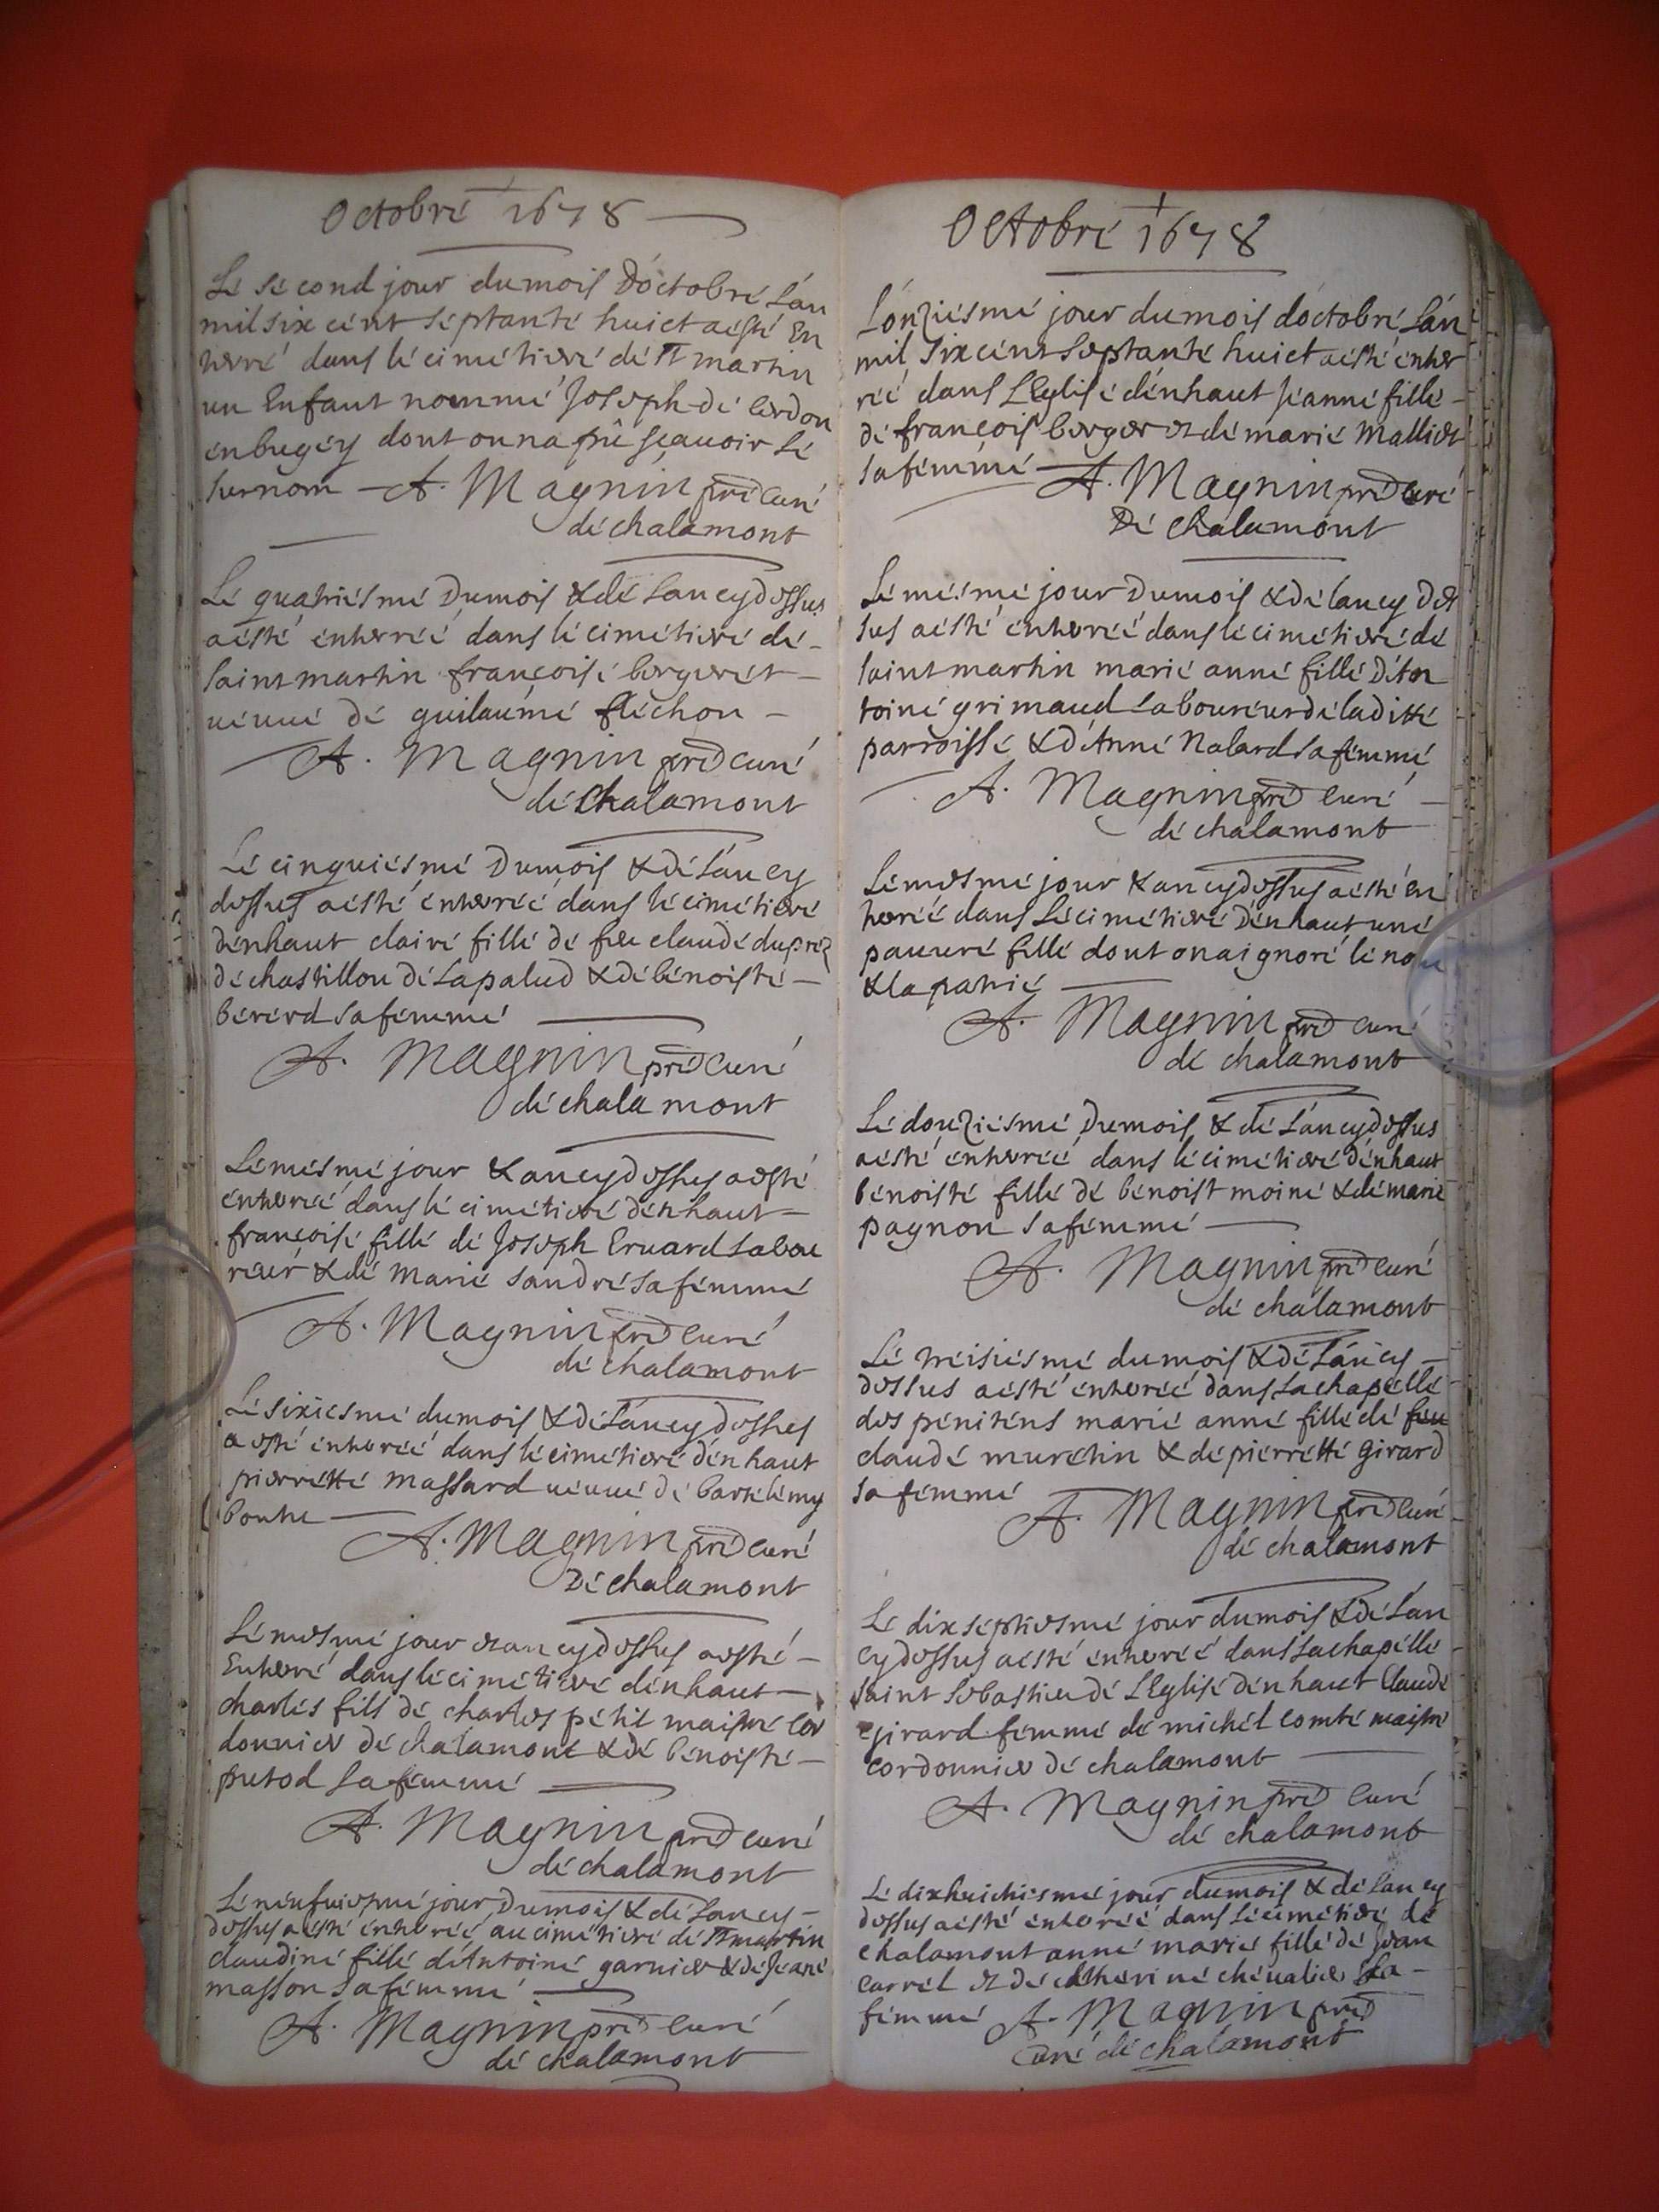 Octobré 1678
Lé second jour dumois D'octobré L'an
mil six cént séptanté huict aésté En
terré dans lé cimétieré dé st martin
un Enfant nommé Joseph dé Cerdon
enbugéy dont on na pû sçauoir Lé
surnom A. Magnin pré Curé
dé chalamont
Lé quatriésmé Dumois & dé Lan cy dessus
aésté énterréé dans lé cimétieré dé
saint martin françoisé bergerét
uéuué dé guilaumé fléchon
A. Magnin pré curé
dé Chalamont
Lé cinquiésmé Dumois & dé L'an cy
dessus aésté énteréé dans lé cimétieré
dénhaut clairé fillé dé feu claudé dupréz
dé chastillon dé Lapalud & dé bénoisté
bérérd sa fémmé
A. Magnin pré Curé
dé chalamont
Lé mésmé jour & an cy dessus aesté
énteréé dans lé cimétieré dénhaut
françoisé fillé dé Joseph Eruard Labou
reur & dé Marié sandré sa fémmé
A. Magnin pré Curé
dé chalamont
Lé sixiésmé dumois & dé L'an cy dessus
aesté énteréé dans lé cimétieré dénhaut
pierrétté Massard uéuué dé bartélémy
bontre
A. Magnin pré curé
Dé chalamont
Lé mesmé jour et an cy dessus aesté
Enteré dans lé cimétieré dénhaut
charlés fils dé charles pétit maistré Cor
donnier dé chalamont & dé bénoisté
putod sa fémmé
A. Magnin pré curé
dé chalamont
Lé néufuiesmé jour Dumois & dé Lan cy
dessus aésté énteréé au cimétieré dé st martin
claudiné fillé d'Antoiné garnier & dé Jeané
masson sa fémmé
A. Magnin pré curé
dé chalamont
Octobré 1678
L'onziésmé jour dumois d'octobré L'an
mil six cént septanté huict aésté énter
réé dans L'Eglisé dénhaut Jeanné fillé
dé françois berger et dé marié Malliet
sa fémmé A. Magnin pré curé
Dé chalamont
Lé mésmé jour Dumois & dé lan cy des
sus aésté énteréé dans lé cimétieré dé
saint martin marié anné fillé D'An
toiné grimaud Labouréur dé laditté
parroissé & d'Anné Nalard sa fémmé
A. Magnin pré curé
dé chalamont
Lé mesmé jour & an cy dessus aésté En
teréé dans Lé cimétieré Dénhaut uné
pauuré fillé dont on a ignoré lé nom
& la patrié
A. Magnin pré curé
dé chalamont
Lé douziésmé Dumois & dé L'an cy dessus
aésté énteréé dans lé cimétieré dénhaut
bénoisté fillé dé bénoist moiné & dé marié
pagnon sa fémmé
A. Magnin pré curé
dé chalamont
Lé tréisiésmé dumois & dé L'an cy
dessus aésté énteréé dans La chapéllé
des péniténs marié anné fillé dé feu
claudé murétin & dé pierrétté Girard
sa fémmé
A. Magnin pré curé
dé chalamont
Lé dix séptiesmé jour dumois & dé L'an
cy dessus aésté énteréé dans La chapéllé
saint sébastien dé L'Eglisé dénhaut Claudé
girard fémmé dé michél Comté maistré
cordonnier dé chalamont
A. Magnin pré Curé
dé chalamont
Lé dixhuictiésmé jour dumois & dé Lan cy
dessus aésté énteréé dans Lé cimétieré dé
chalamont anné marié fillé dé Jean
Carrél et dé cathériné chéualier sa
fémmé A. Magnin pré
Curé dé chalamont